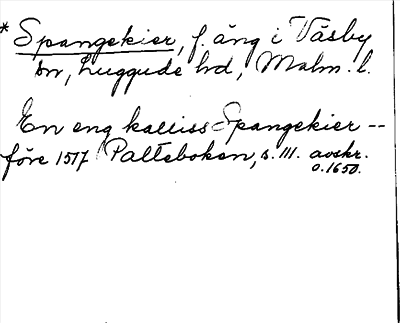 * Spangekier, f. äng i Väsby
sn, Luggude hd, Malm. l.
En eng kalliss Spangekier --
före 1517 Palteboken, s. 111. avskr.
o. 1650.